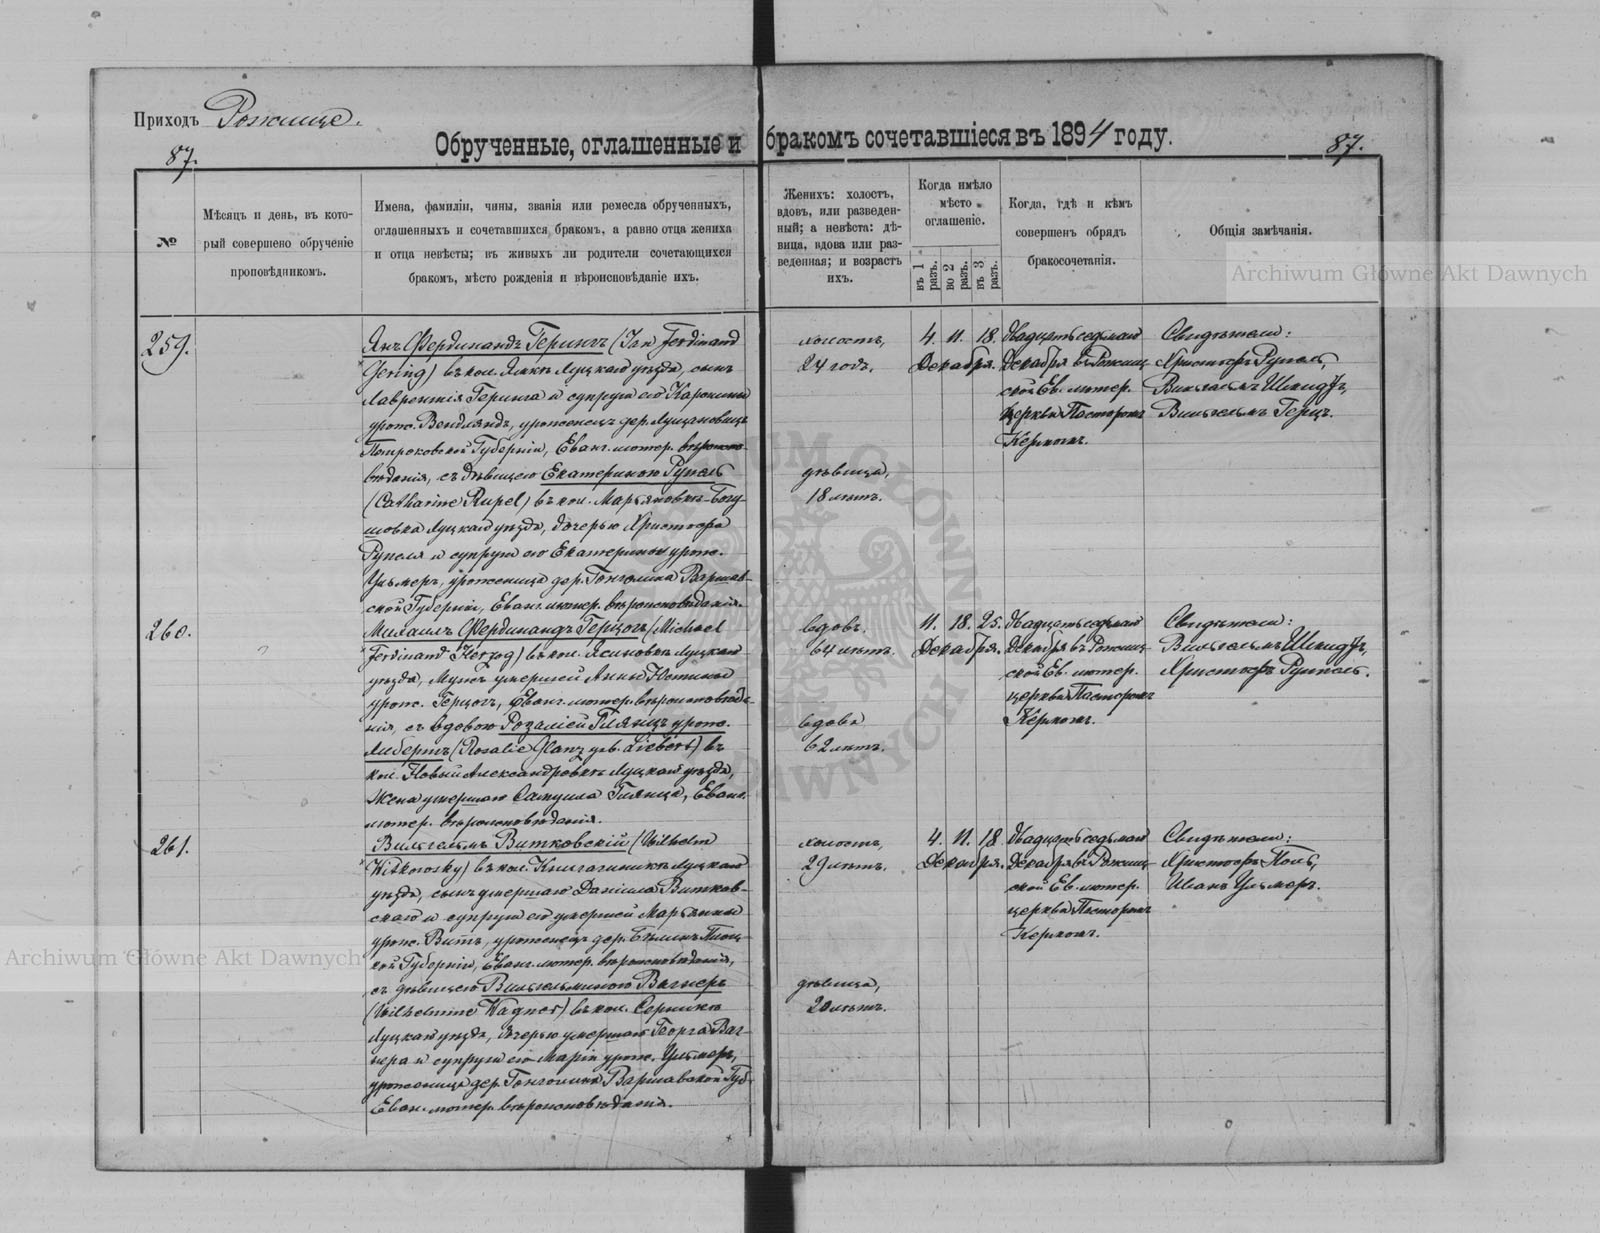 Приходъ Рожище.
Обрученные, оглашенные и бракомъ сочетавшіеся въ 1894 году.
87.
87.
№
Мѣсяцъ и день, въ кото-
рый совершено обрученіе
проповѣдникомъ.
Имена, фамиліи, чины, званія или ремесла обрученныхъ,
оглашенныхъ и сочетавшихся бракомъ, а равно отца жениха
и отца невѣсты; въ живыхъ ли родители сочетающихся
бракомъ, мѣсто рожденія и вѣроисповѣданіе ихъ.
Женихъ: холостъ,
вдовъ, или разведен-
ный; а невѣста: дѣ-
вица, вдова или раз-
веденная; и возрастъ
ихъ.
Когда имѣло
мѣсто
оглашеніе.
въ 1 разъ.
во 2 разъ.
въ 3 разъ.
Когда, гдѣ и кѣмъ
совершенъ обрядъ
бракосочетанія.
Общія замѣчанія.
259.
Янъ Фердинандъ Герингъ (Jan Ferdinand
Gering) въ кол. Луцкаго уѣзда, сынъ
Лаврентія Геринга и супруги его Каролины
урож. Вендляндъ, уроженецъ дер.
Петроковской Губерніи, Еванг. лютер. вѣроиспо-
вѣданія, съ дѣвицею Екатериною Рупель
(Catharine Rupel) въ кол. Марьяновкѣ-Богу-
шовка Луцкаго уѣзда, дочерью Христофа
Рупеля и супруги его Екатерины урож.
Ульмеръ, уроженица дер. Гонголина Варшав-
ской Губерніи, Еванг. лютер. вѣроисповѣданія.
холостъ,
24 годъ.
дѣвица,
18 лѣтъ.
4. 11. 18.
Декабря.
Двадцать седьмаго
Декабря въ Рожищ-
ской Ев. лютер.
церкви Пасторомъ
Кернъ.
Свидѣтели:
Христофъ Рупель,
Вильгельмъ Шмидтъ,
Вильгельмъ Герцъ.
260.
Михаилъ Фердинандъ Герцогъ (Michael
Ferdinand Herzog) въ кол. Ясиновкѣ Луцкаго
уѣзда, мужъ умершей Анны Юстины
урож. Герцогъ, Еванг. лютер. вѣроисповѣда-
нія, съ вдовою Розаліей Глянцъ урож.
Либертъ (Rosalie Glanz geb. Liebert) въ
кол. Новый Александровкѣ Луцкаго уѣзда,
жена умершаго Самуила Глянца, Еванг.
лютер. вѣроисповѣданія.
вдовъ,
64 лѣтъ.
вдова
62 лѣтъ.
11. 18. 25.
Декабря.
Двадцать седьмаго
Декабря въ Рожищ-
ской Ев. лютер.
церкви Пасторомъ
Кернъ.
Свидѣтели:
Вильгельмъ Шмидтъ,
Христофъ Рупель.
261.
Вильгельмъ Витковскій (Wilhelm
Witkowsky) въ кол. Луцкаго
уѣзда, сынъ умершаго Даніила Витков-
скаго и супруги его умершей Марьяны
урож. Витъ, уроженецъ дер. Плоц-
кой Губерніи, Еванг. лютер. вѣроисповѣданія,
съ дѣвицею Вильгельминою Вагнеръ
(Wilhelmine Wagner) въ кол. Серникѣ
Луцкаго уѣзда, дочерью умершаго Георга Ваг-
нера и супруги его Маріи урож. Ульмеръ,
уроженица дер. Гонголина Варшавской Губ.
Еван. лютер. вѣроисповѣданія.
холостъ,
29 лѣтъ.
дѣвица,
20 лѣтъ.
4. 11. 18
Декабря.
Двадцать седьмаго
Декабря въ Рожищ-
ской Ев. лютер.
церкви Пасторомъ
Кернъ.
Свидѣтели:
Христофъ Поль,
Иванъ Ульмеръ.
Archiwum Główne Akt Dawnych
Archiwum Główne Akt Dawnych